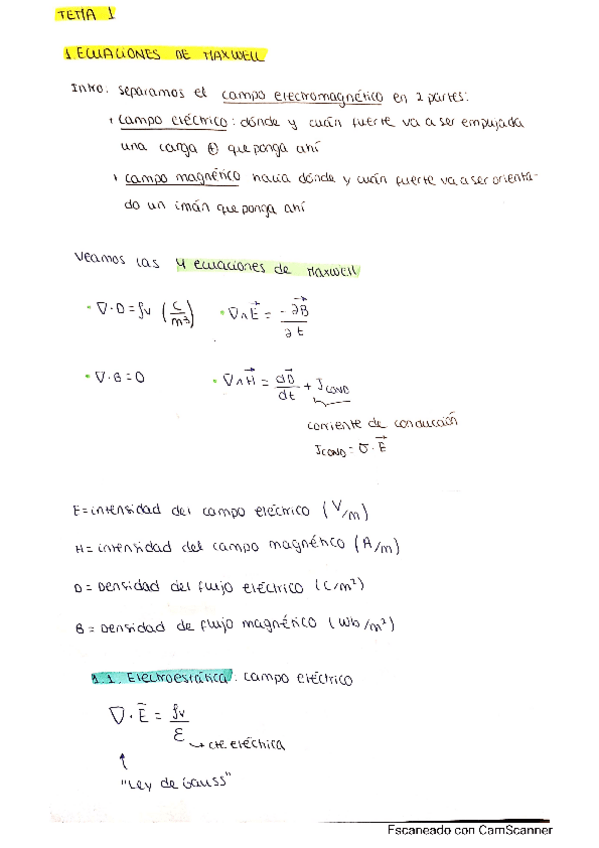 TEMA 1
1 ECUACIONES DE MAXWELL
Intro: separamos el campo electromagnético en 2 partes:
campo eléctrico: dónde y cuán fuerte va a ser empujada
una carga ⊕ que ponga ahí
campo magnético hacia dónde y cuán fuerte va a ser orienta-
do un imán que ponga ahí
Veamos las 4 ecuaciones de Maxwell
• ∇·D = ρv (C/m³) • ∇∧E⃗ = -∂B⃗/∂t
• ∇·B = 0 • ∇∧H⃗ = dD⃗/dt + JCOND
corriente de conducción
JCOND = σ·E⃗
E = intensidad del campo eléctrico (V/m)
H = intensidad del campo magnético (A/m)
D = Densidad del flujo eléctrico (C/m²)
B = Densidad de flujo magnético (Wb/m²)
1.1. Electroestática. campo eléctrico
∇·E⃗ = ρv/ε
→ cte eléctrica
↑
"Ley de Gauss"
Escaneado con CamScanner